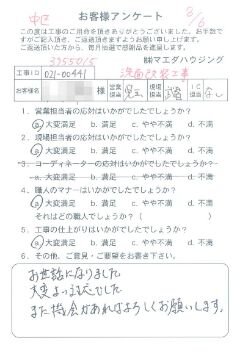 お客様アンケート
中区
8/6
この度は工事のご用命を頂きありがとうございました。お手数で
すがご記入頂き、ご返送頂きますようお願い申し上げます。
ご返送頂いた方から、毎月抽選で感謝品を進呈します。
㈱マエダハウジング
工事ID 021-00441
洗面改装工事
お客様名 様 営業担当 現場担当 IC担当 なし
1. 営業担当者の応対はいかがでしたでしょうか?
a. 大変満足 b. 満足 c. やや不満 d. 不満
2. 現場担当者の応対はいかがでしたでしょうか?
a. 大変満足 b. 満足 c. やや不満 d. 不満
3. コーディネーターの応対はいかがでしたでしょうか?
a. 大変満足 b. 満足 c. やや不満 d. 不満
4. 職人のマナーはいかがでしたでしょうか?
a. 大変満足 b. 満足 c. やや不満 d. 不満
それはどの職人でしょうか? ( )
5. 工事の仕上がりはいかがでしたでしょうか?
a. 大変満足 b. 満足 c. やや不満 d. 不満
6. その他、ご意見・ご要望をお書き下さい。
お世話になりました
大変よい対応でした
また機会があればよろしくお願いします。